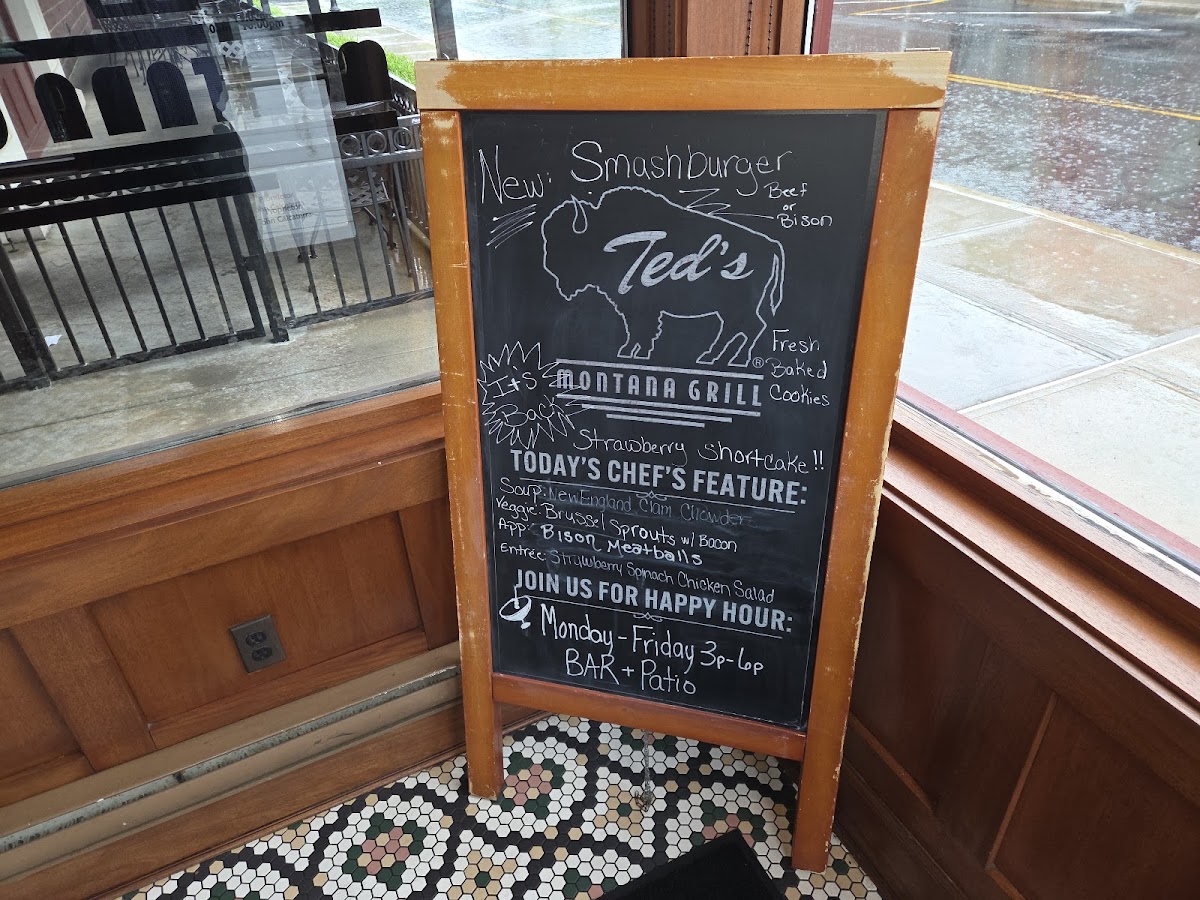 New: Smashburger
Beef
or
Bison
Ted's
MONTANA GRILL
®
Fresh
Baked
Cookies
It's
Back
Strawberry Shortcake!!
TODAY'S CHEF'S FEATURE:
Soup: New England Clam Chowder
Veggie: Brussel Sprouts w/ Bacon
App: Bison Meatballs
Entrée: Strawberry Spinach Chicken Salad
JOIN US FOR HAPPY HOUR:
Monday-Friday 3p-6p
BAR + Patio